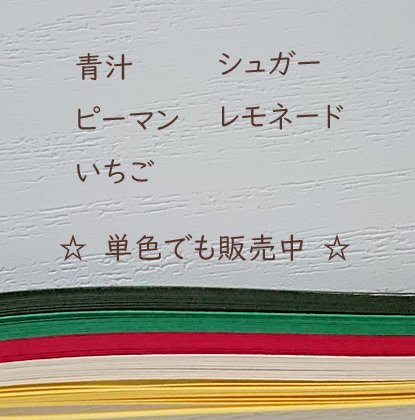 青汁
ピーマン
いちご
シュガー
レモネード
☆ 単色でも販売中 ☆